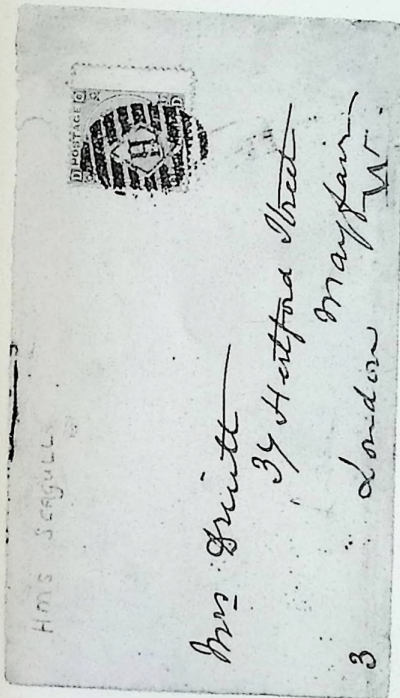 HMS SEAGULL
POSTAGE
H
Mrs Druitt
37 Hertford Street
Mayfair
London W.
3